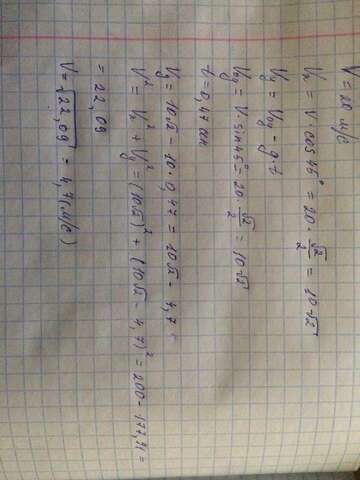 V = 20 м/с
Vx = V · cos 45° = 20 · √2/2 = 10√2
Vy = V0y - g·t
V0y = V · sin 45° = 20 · √2/2 = 10√2
t = 0,47 сек
Vy = 10√2 - 10 · 0,47 = 10√2 - 4,7
V² = Vx² + Vy² = (10√2)² + (10√2 - 4,7)² = 200 - 177,91 =
= 22,09
V = √22,09 = 4,7 (м/с)